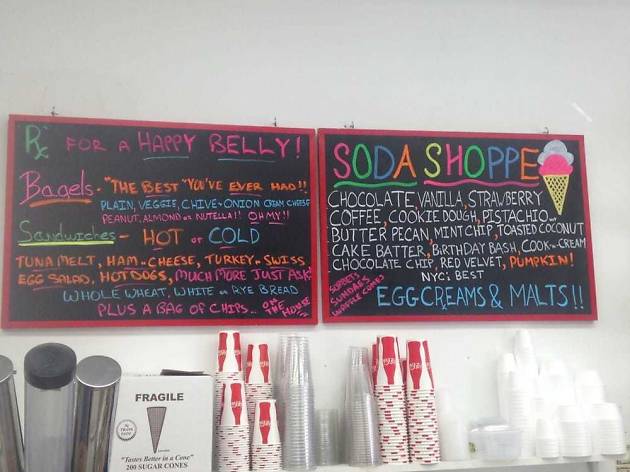 Rx FOR A HAPPY BELLY!
Bagels - "THE BEST "YOU'VE EVER HAD!!
PLAIN, VEGGIE, CHIVE-ONION CREAM CHEESE
PEANUT, ALMOND OR NUTELLA!! OH MY!!
Sandwiches - HOT or COLD
TUNA MELT, HAM-CHEESE, TURKEY-SWISS
EGG SALAD, HOT DOGS, MUCH MORE JUST ASK!
WHOLE WHEAT, WHITE OR RYE BREAD
PLUS A BAG OF CHIPS... ON THE HOUSE
SODA SHOPPE
CHOCOLATE, VANILLA, STRAWBERRY
COFFEE, COOKIE DOUGH, PISTACHIO
BUTTER PECAN, MINT CHIP, TOASTED COCONUT
CAKE BATTER, BIRTHDAY BASH, COOK-N-CREAM
CHOCOLATE CHIP, RED VELVET, PUMPKIN!
SORBETS
SUNDAES
WAFFLE CONES
NYC'S BEST
EGG CREAMS & MALTS!!
FRAGILE
"Tastes Better in a Cone"
200 SUGAR CONES